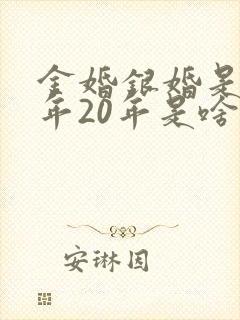 金婚銀婚是
年20年是啥
安琳因